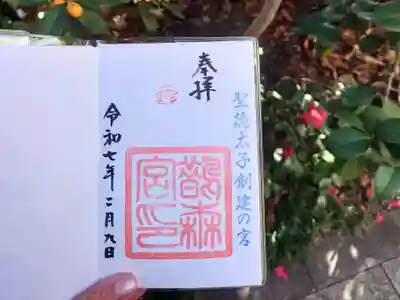 聖徳太子創建の宮
奉拝
鵲森宮印
令和七年二月九日